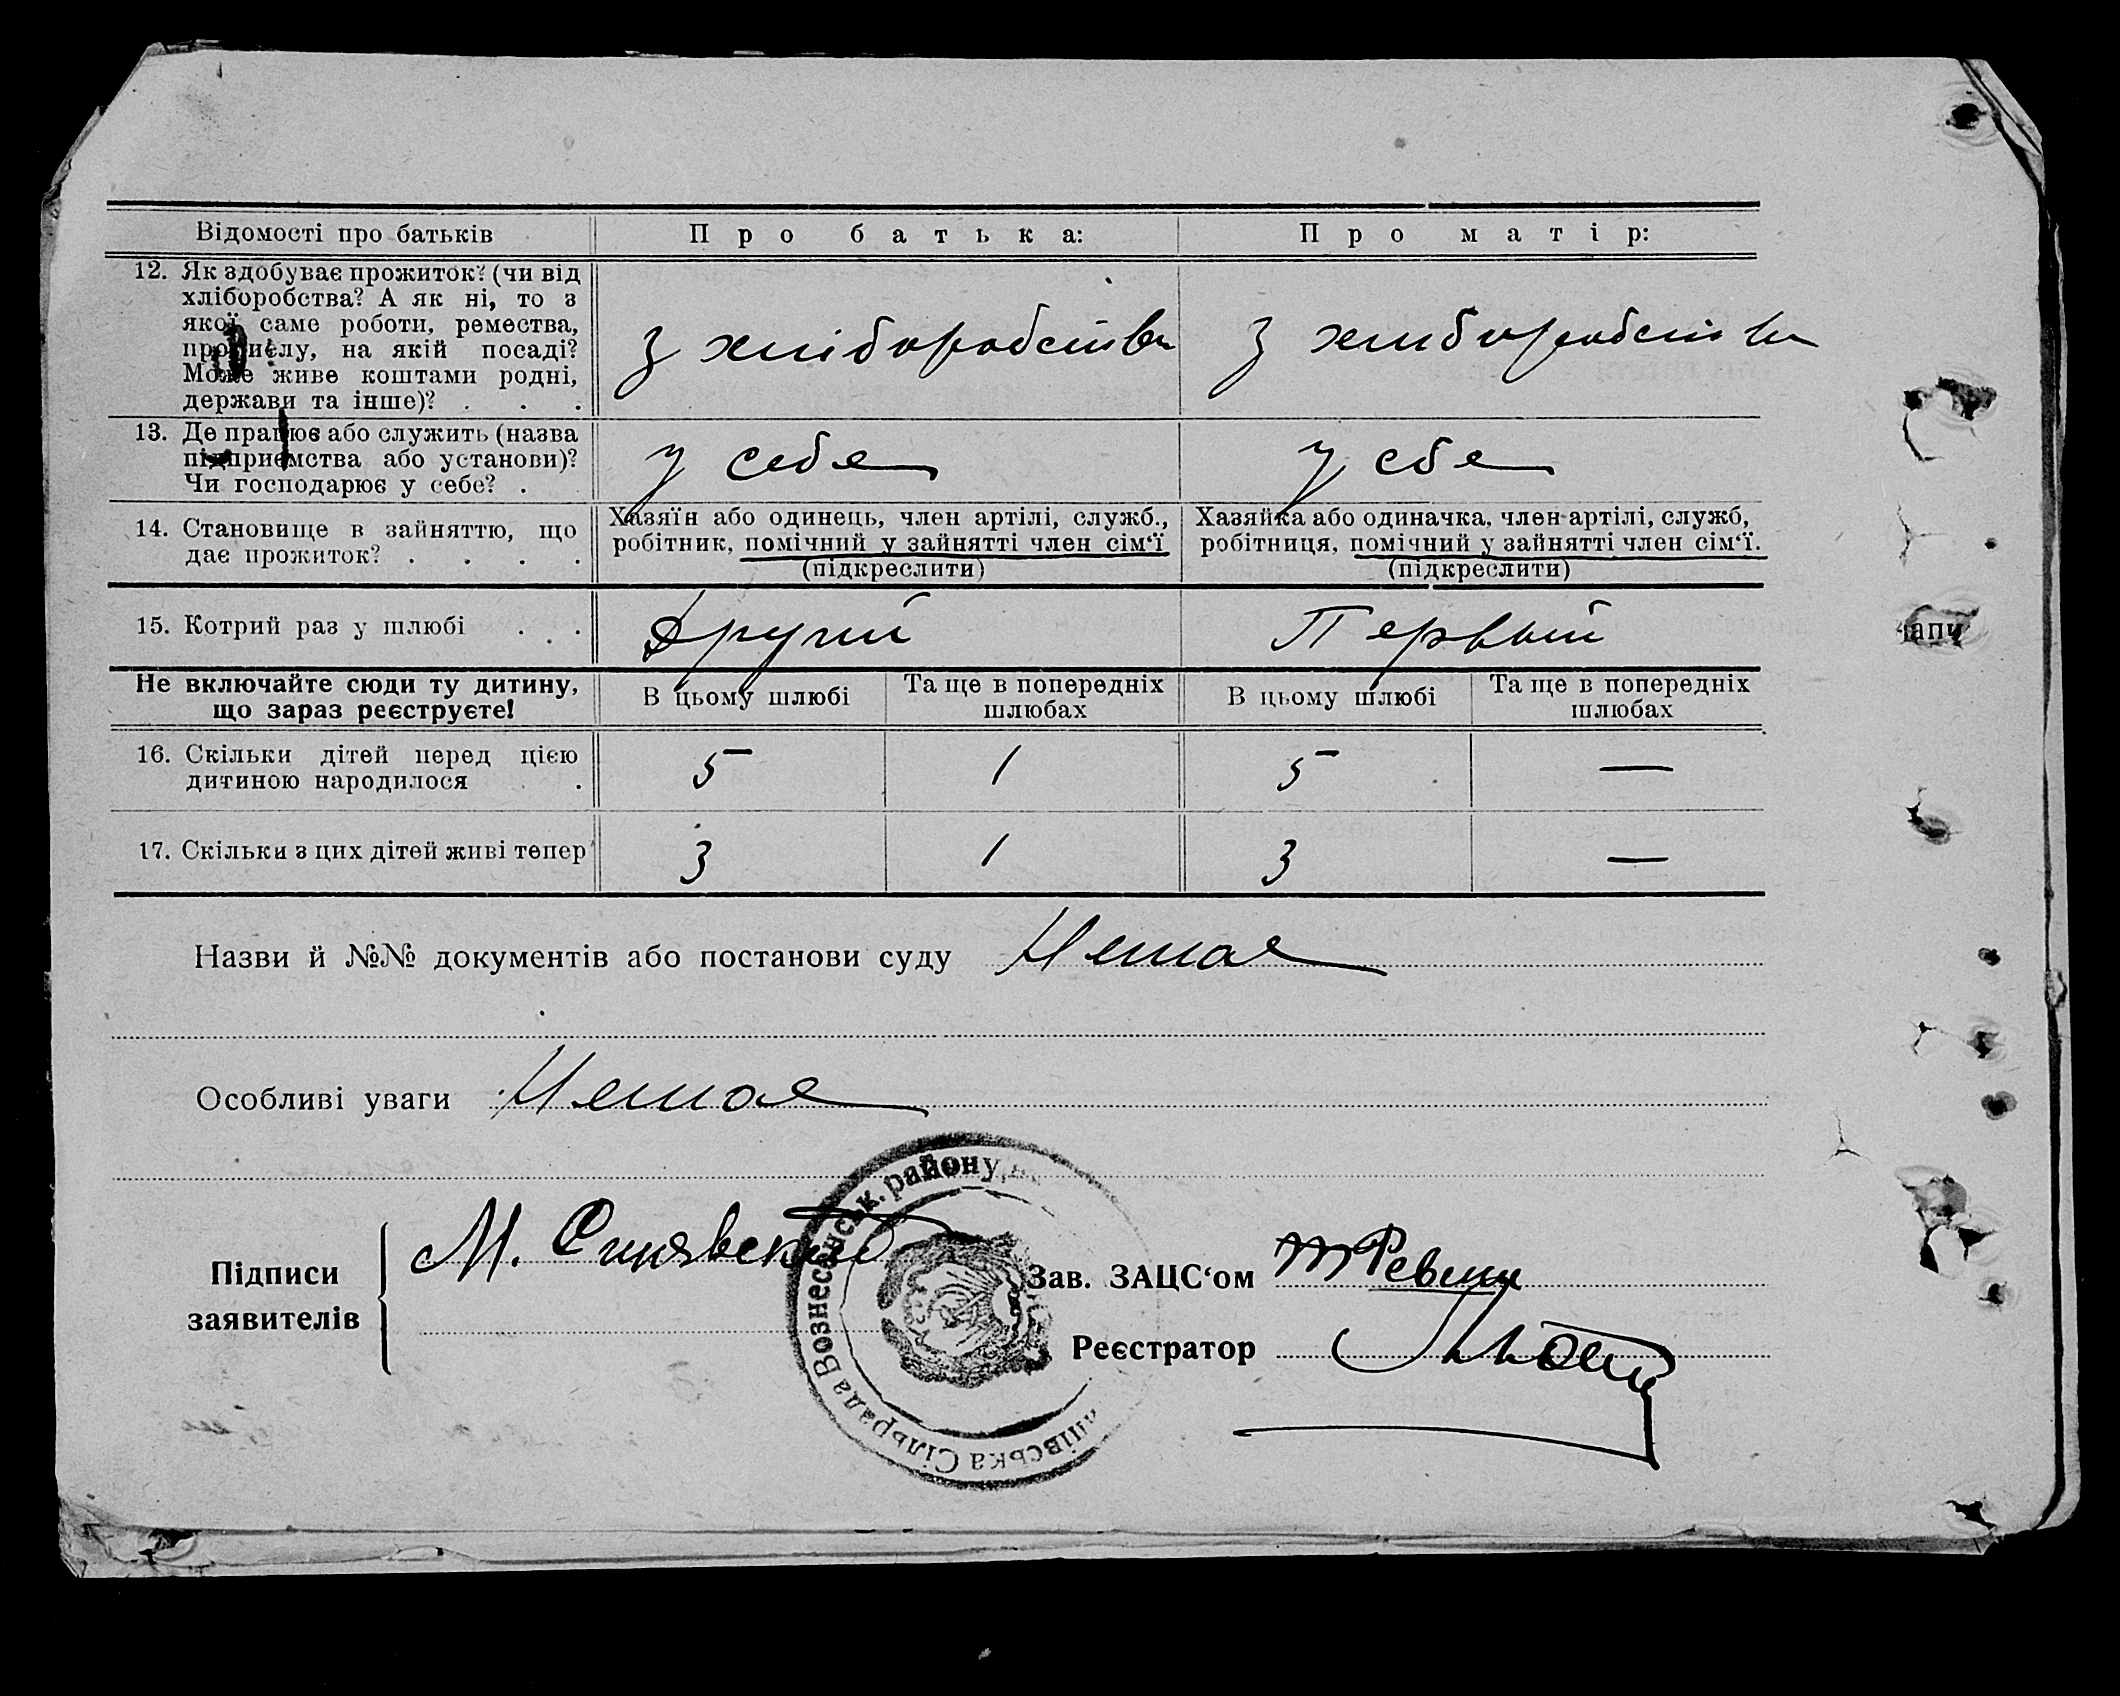 Відомості про батьків
Про батька:
Про матір:
12. Як здобуває прожиток? (чи від
хліборобства? А як ні, то з
якої саме роботи, ремества,
промислу, на якій посаді?
Може живе коштами родні,
держави та інше)? . . .
З хліборобства
З хлиборобства
13. Де працює або служить (назва
підприємства або установи)?
Чи господарює у себе? .
у себе
у сбе
14. Становище в зайняттю, що
дає прожиток? . . . .
Хазяїн або одинець, член артілі, служб.,
робітник, помічний у зайнятті член сім‘ї
(підкреслити)
Хазяйка або одиначка, член артілі, служб,
робітниця, помічний у зайнятті член сім‘ї.
(підкреслити)
15. Котрий раз у шлюбі . . .
Другий
Первый
Не включайте сюди ту дитину,
що зараз реєструєте!
В цьому шлюбі
Та ще в попередніх
шлюбах
В цьому шлюбі
Та ще в попередніх
шлюбах
16. Скільки дітей перед цією
дитиною народилося .
5
1
5
—
17. Скільки з цих дітей живі тепер
3
1
3
—
Назви й №№ документів або постанови суду Немае
Особливі уваги Немае
Підписи
заявителів
М. Синявский
Зав. ЗАЦС‘ом
Реєстратор
Сільрада Вознесенськ. району